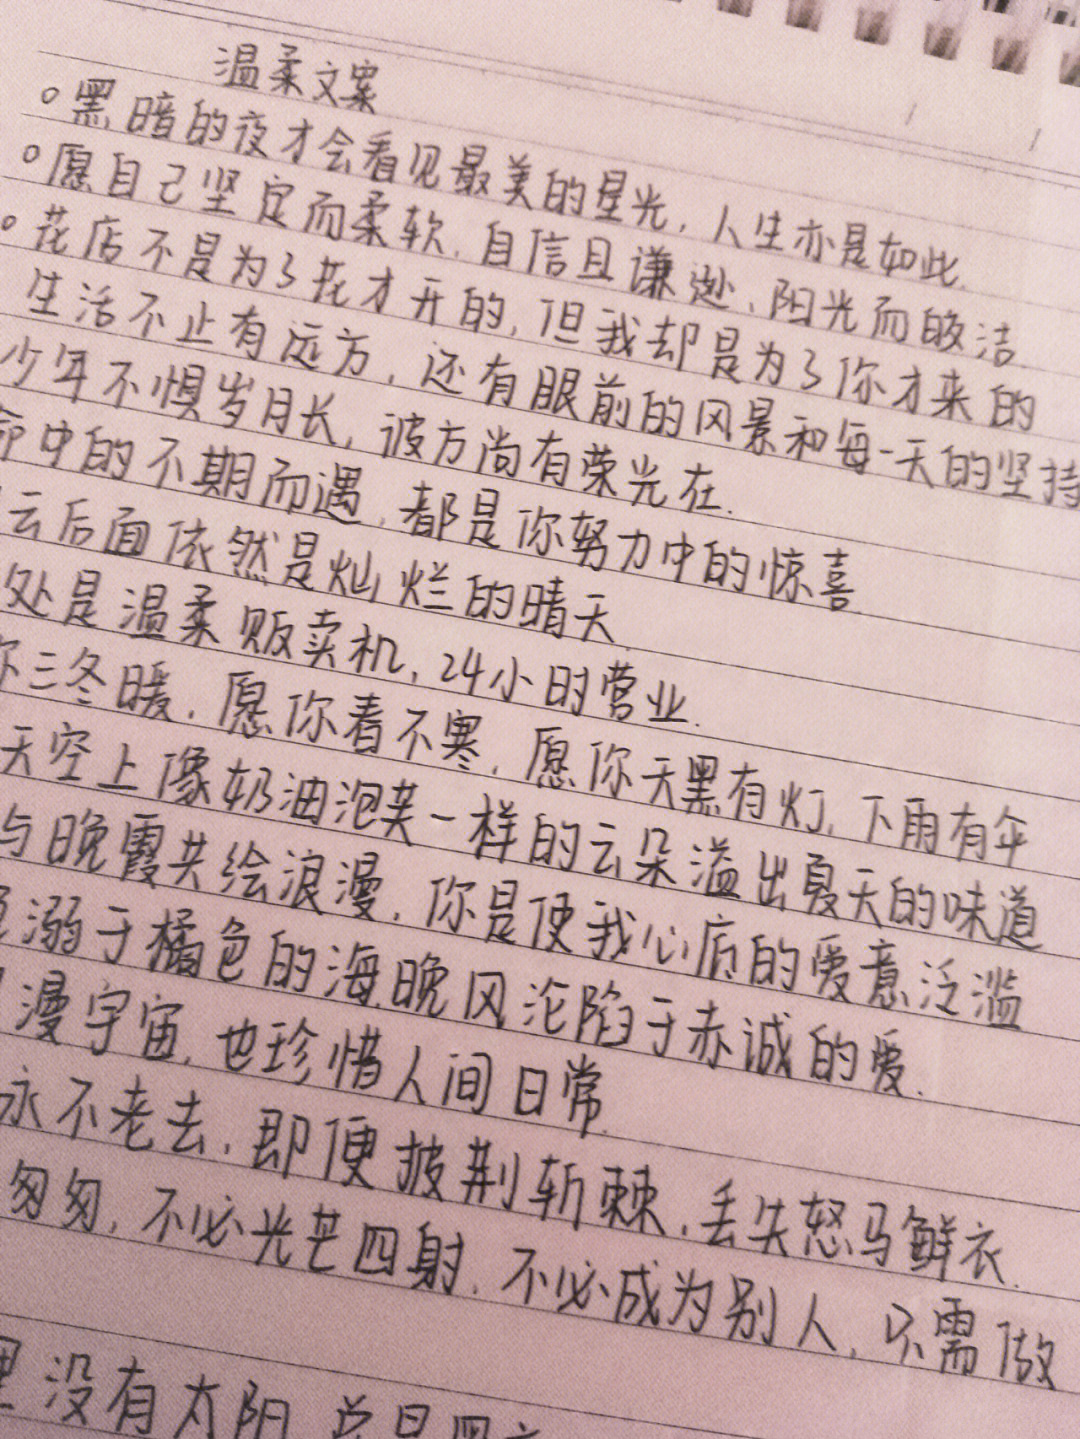 温柔文案
黑暗的夜才会看见最美的星光,人生亦是如此.
愿自己坚定而柔软.自信且谦逊、阳光而皎洁.
花店不是为了花才开的,但我却是为了你才来的
生活不止有远方,还有眼前的风景和每一天的坚持
少年不惧岁月长,彼方尚有荣光在.
命中的不期而遇,都是你努力中的惊喜
云后面依然是灿烂的晴天
处是温柔贩卖机,24小时营业.
你三冬暖,愿你春不寒,愿你天黑有灯,下雨有伞
天空上像奶油泡芙一样的云朵溢出夏天的味道
与晚霞共绘浪漫,你是使我心底的爱意泛滥
溺于橘色的海.晚风沦陷于赤诚的爱.
漫宇宙,也珍惜人间日常.
永不老去,即便披荆斩棘,丢失怒马鲜衣.
匆匆,不必光芒四射,不必成为别人,只需做
里没有太阳 总是